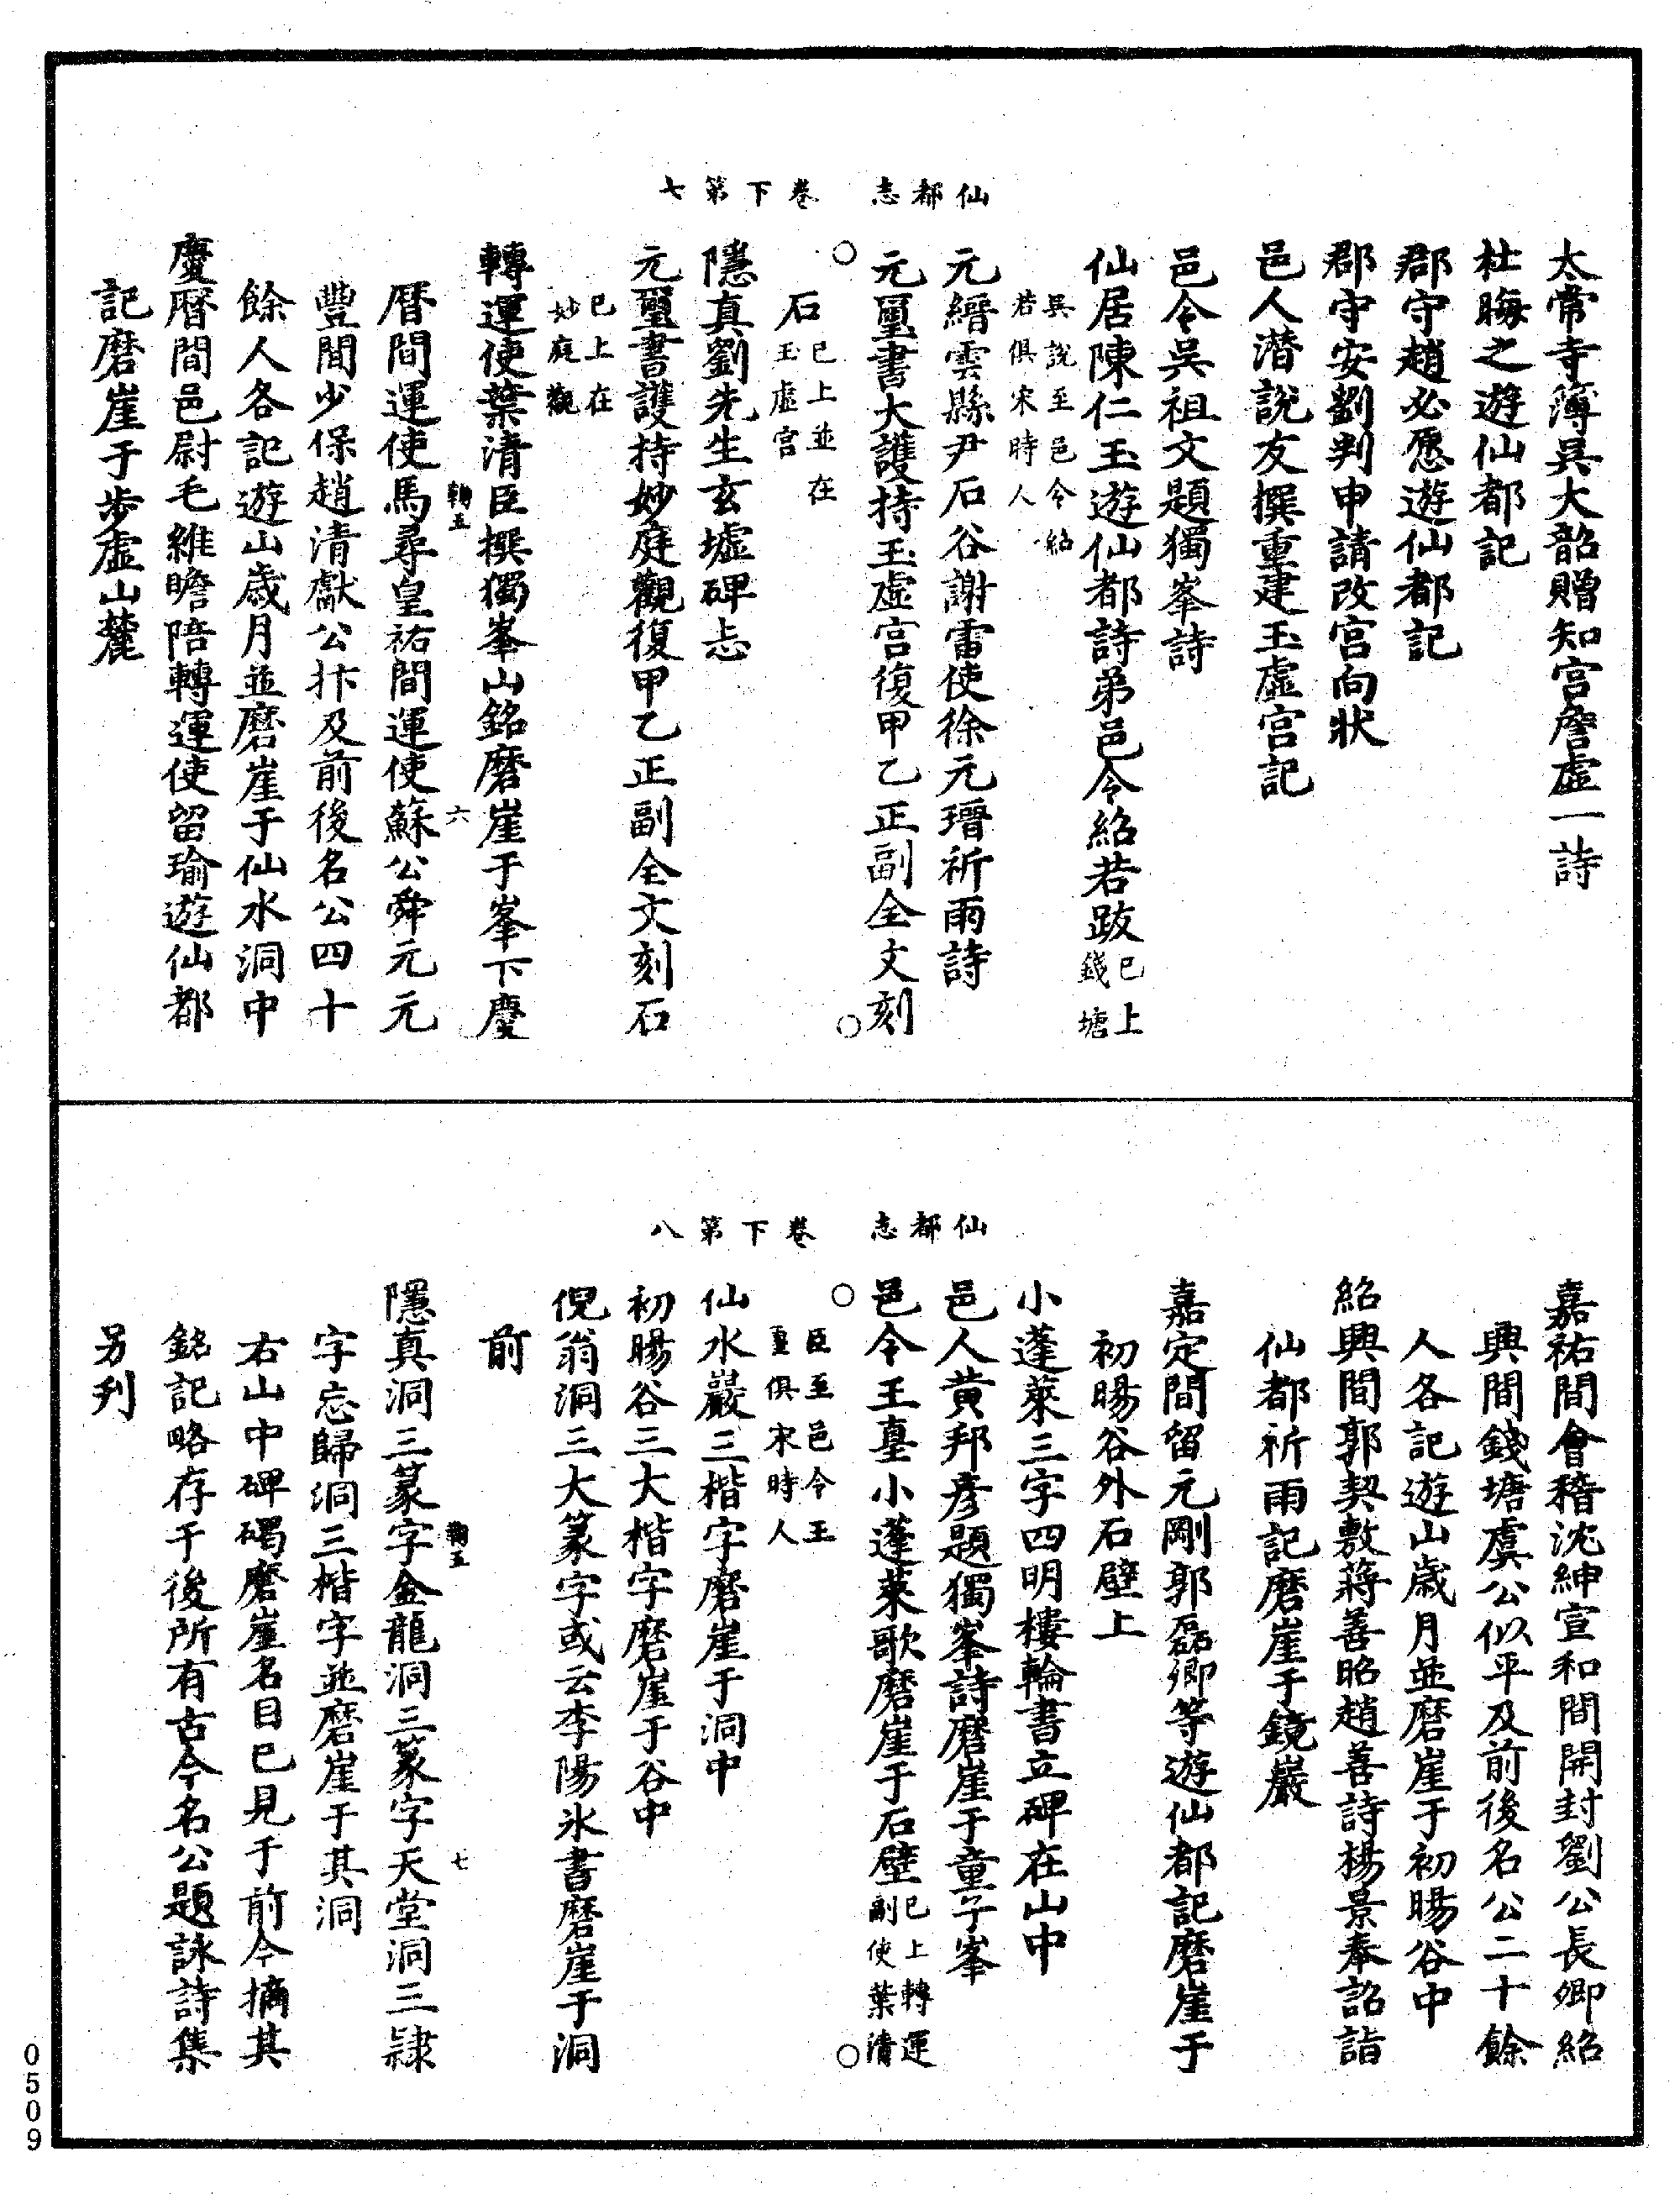 仙都志　卷下第七
太常寺簿吳大韶贈知宮詹虛一詩
杜晦之遊仙都記
郡守趙必愿遊仙都記
郡守安劉判申請改宮向狀
邑人潛說友撰重建玉虛宮記
邑令吳祖文題獨峯詩
仙居陳仁玉遊仙都詩弟邑令紹若跋已上錢塘
吳說至邑令紹若俱宋時人
元縉雲縣尹石谷謝雷使徐元瑨祈雨詩
元璽書大護持玉虛宮復甲乙正副全文刻
石已上並在玉虛宮
隱真劉先生玄墟碑忐
元璽書護持妙庭觀復甲乙正副全文刻石
已上在妙庭觀
轉運使葉清臣撰獨峯山銘磨崖于峯下慶
鞠五　六
曆間運使馬尋皇祐間運使蘇公舜元元
豐間少保趙清獻公抃及前後名公四十
餘人各記遊山歲月並磨崖于仙水洞中
慶曆間邑尉毛維瞻陪轉運使留瑜遊仙都
記磨崖于步虛山麓
仙都志　卷下第八
嘉祐間會稽沈紳宣和間開封劉公長卿紹
興間錢塘虞公似平及前後名公二十餘
人各記遊山歲月並磨崖于初暘谷中
紹興間郭契敷蔣善昭趙善詩楊景奉詔詣
仙都祈雨記磨崖于鏡巖
嘉定間留元剛郭磊卿等遊仙都記磨崖于
初暘谷外石壁上
小蓬萊三字四明樓輪書立碑在山中
邑人黄邦彥題獨峯詩磨崖于童子峯
邑令王䓕小蓬萊歌磨崖于石壁已上轉運副使葉清
臣至邑令王䓕俱宋時人
仙水巖三楷字磨崖于洞中
初暘谷三大楷字磨崖于谷中
倪翁洞三大篆字或云李陽氷書磨崖于洞
前
隱真洞三篆字金龍洞三篆字天堂洞三隸
鞠五　七
字忘歸洞三楷字並磨崖于其洞
右山中碑碣磨崖名目已見于前今摘其
銘記略存于後所有古今名公題詠詩集
另刋
0509